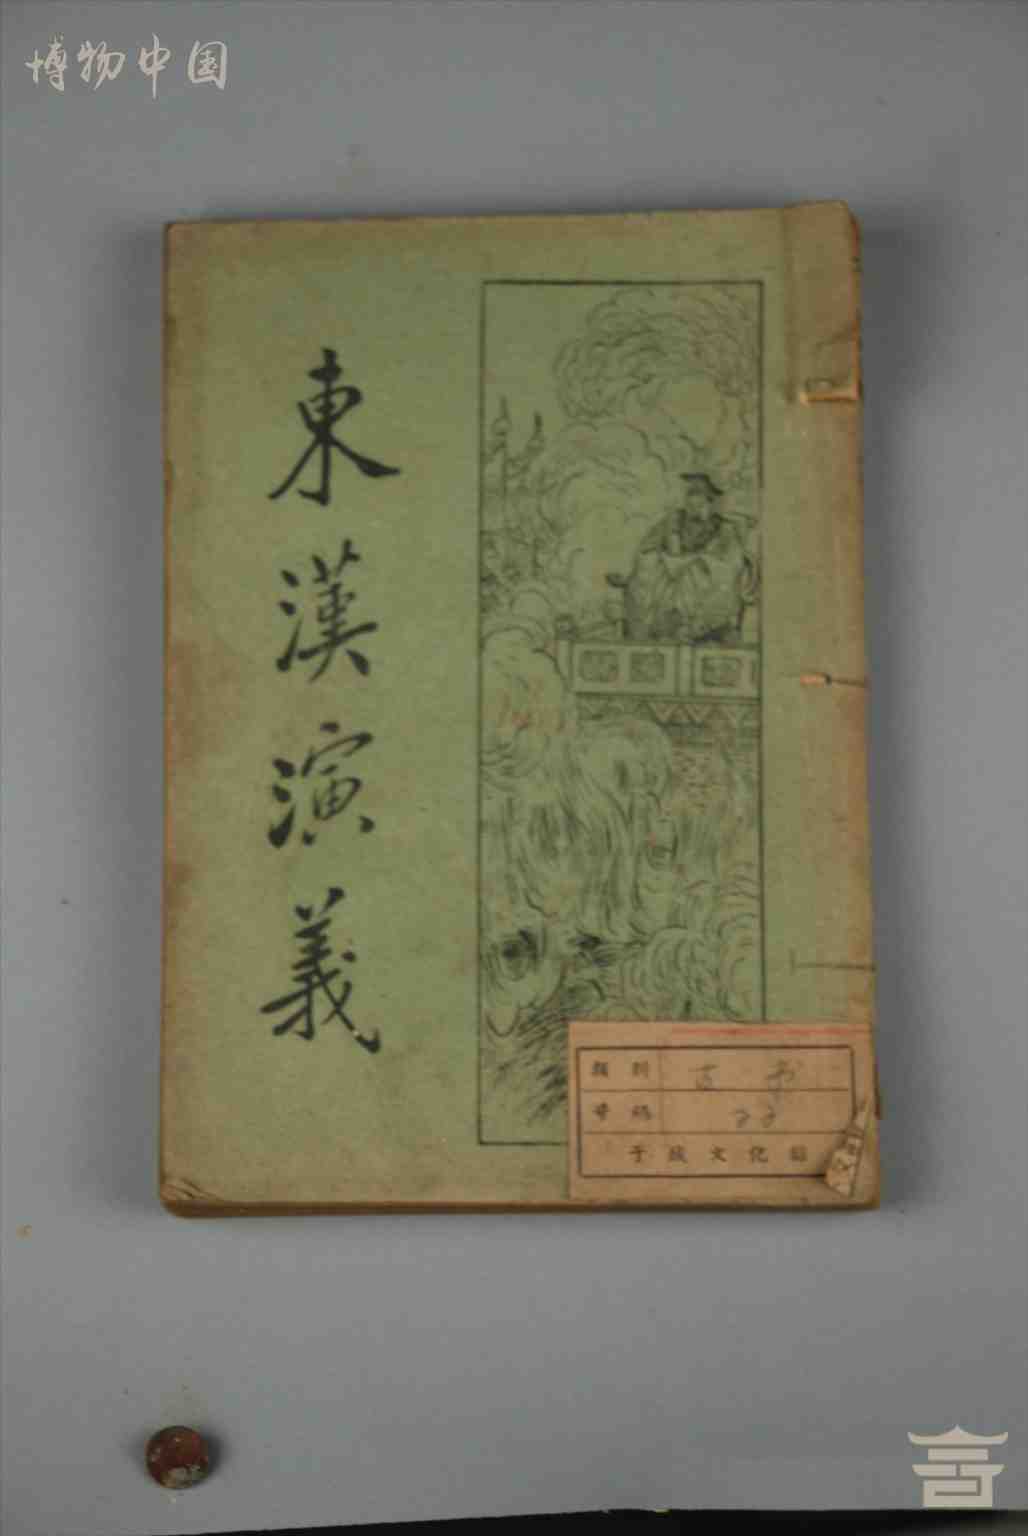 博物中国
東漢演義
類別 古书
号碼
文化館